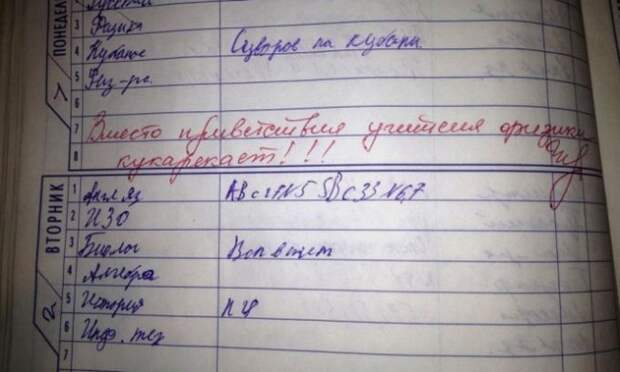 ПОНЕДЕЛ
3 Физика
4 Кубанов Суворов на Кубани
5 Физ-ра
6
7 Вместо приветствия учителя физики
8 кукарекает!!!
ВТОРНИК
1 Англ яз
2 ИЗО
3 Биолог
4 Алгебра
5 История П4
6 Инф. тех
7